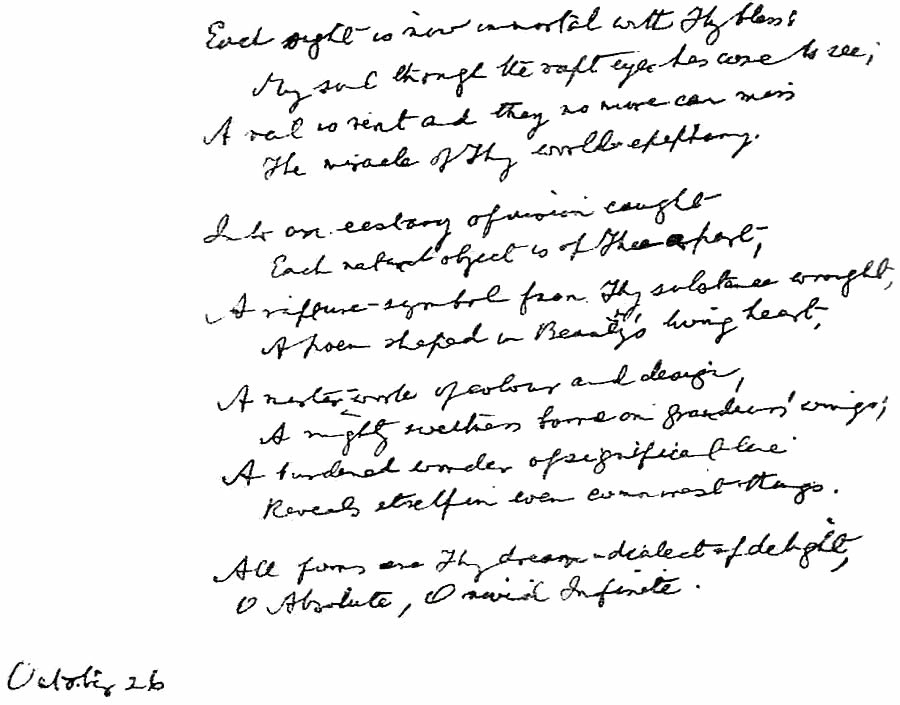 Each sight is now immortal with Thy bliss:
My soul through the rapt eyes has come to see;
A veil is rent and they no more can miss
The miracle of Thy world-epiphany.
Into an ecstasy of vision caught
Each natural object is of Thee a part,
A rapture-symbol from Thy substance wrought,
A poem shaped in Beauty's living heart,
A master-work of colour and design,
A mighty sweetness borne on grandeur's wings;
A burdened wonder of significant line
Reveals itself in even commonest things.
All forms are Thy dream-dialect of delight,
O Absolute, O vivid Infinite.
October 26